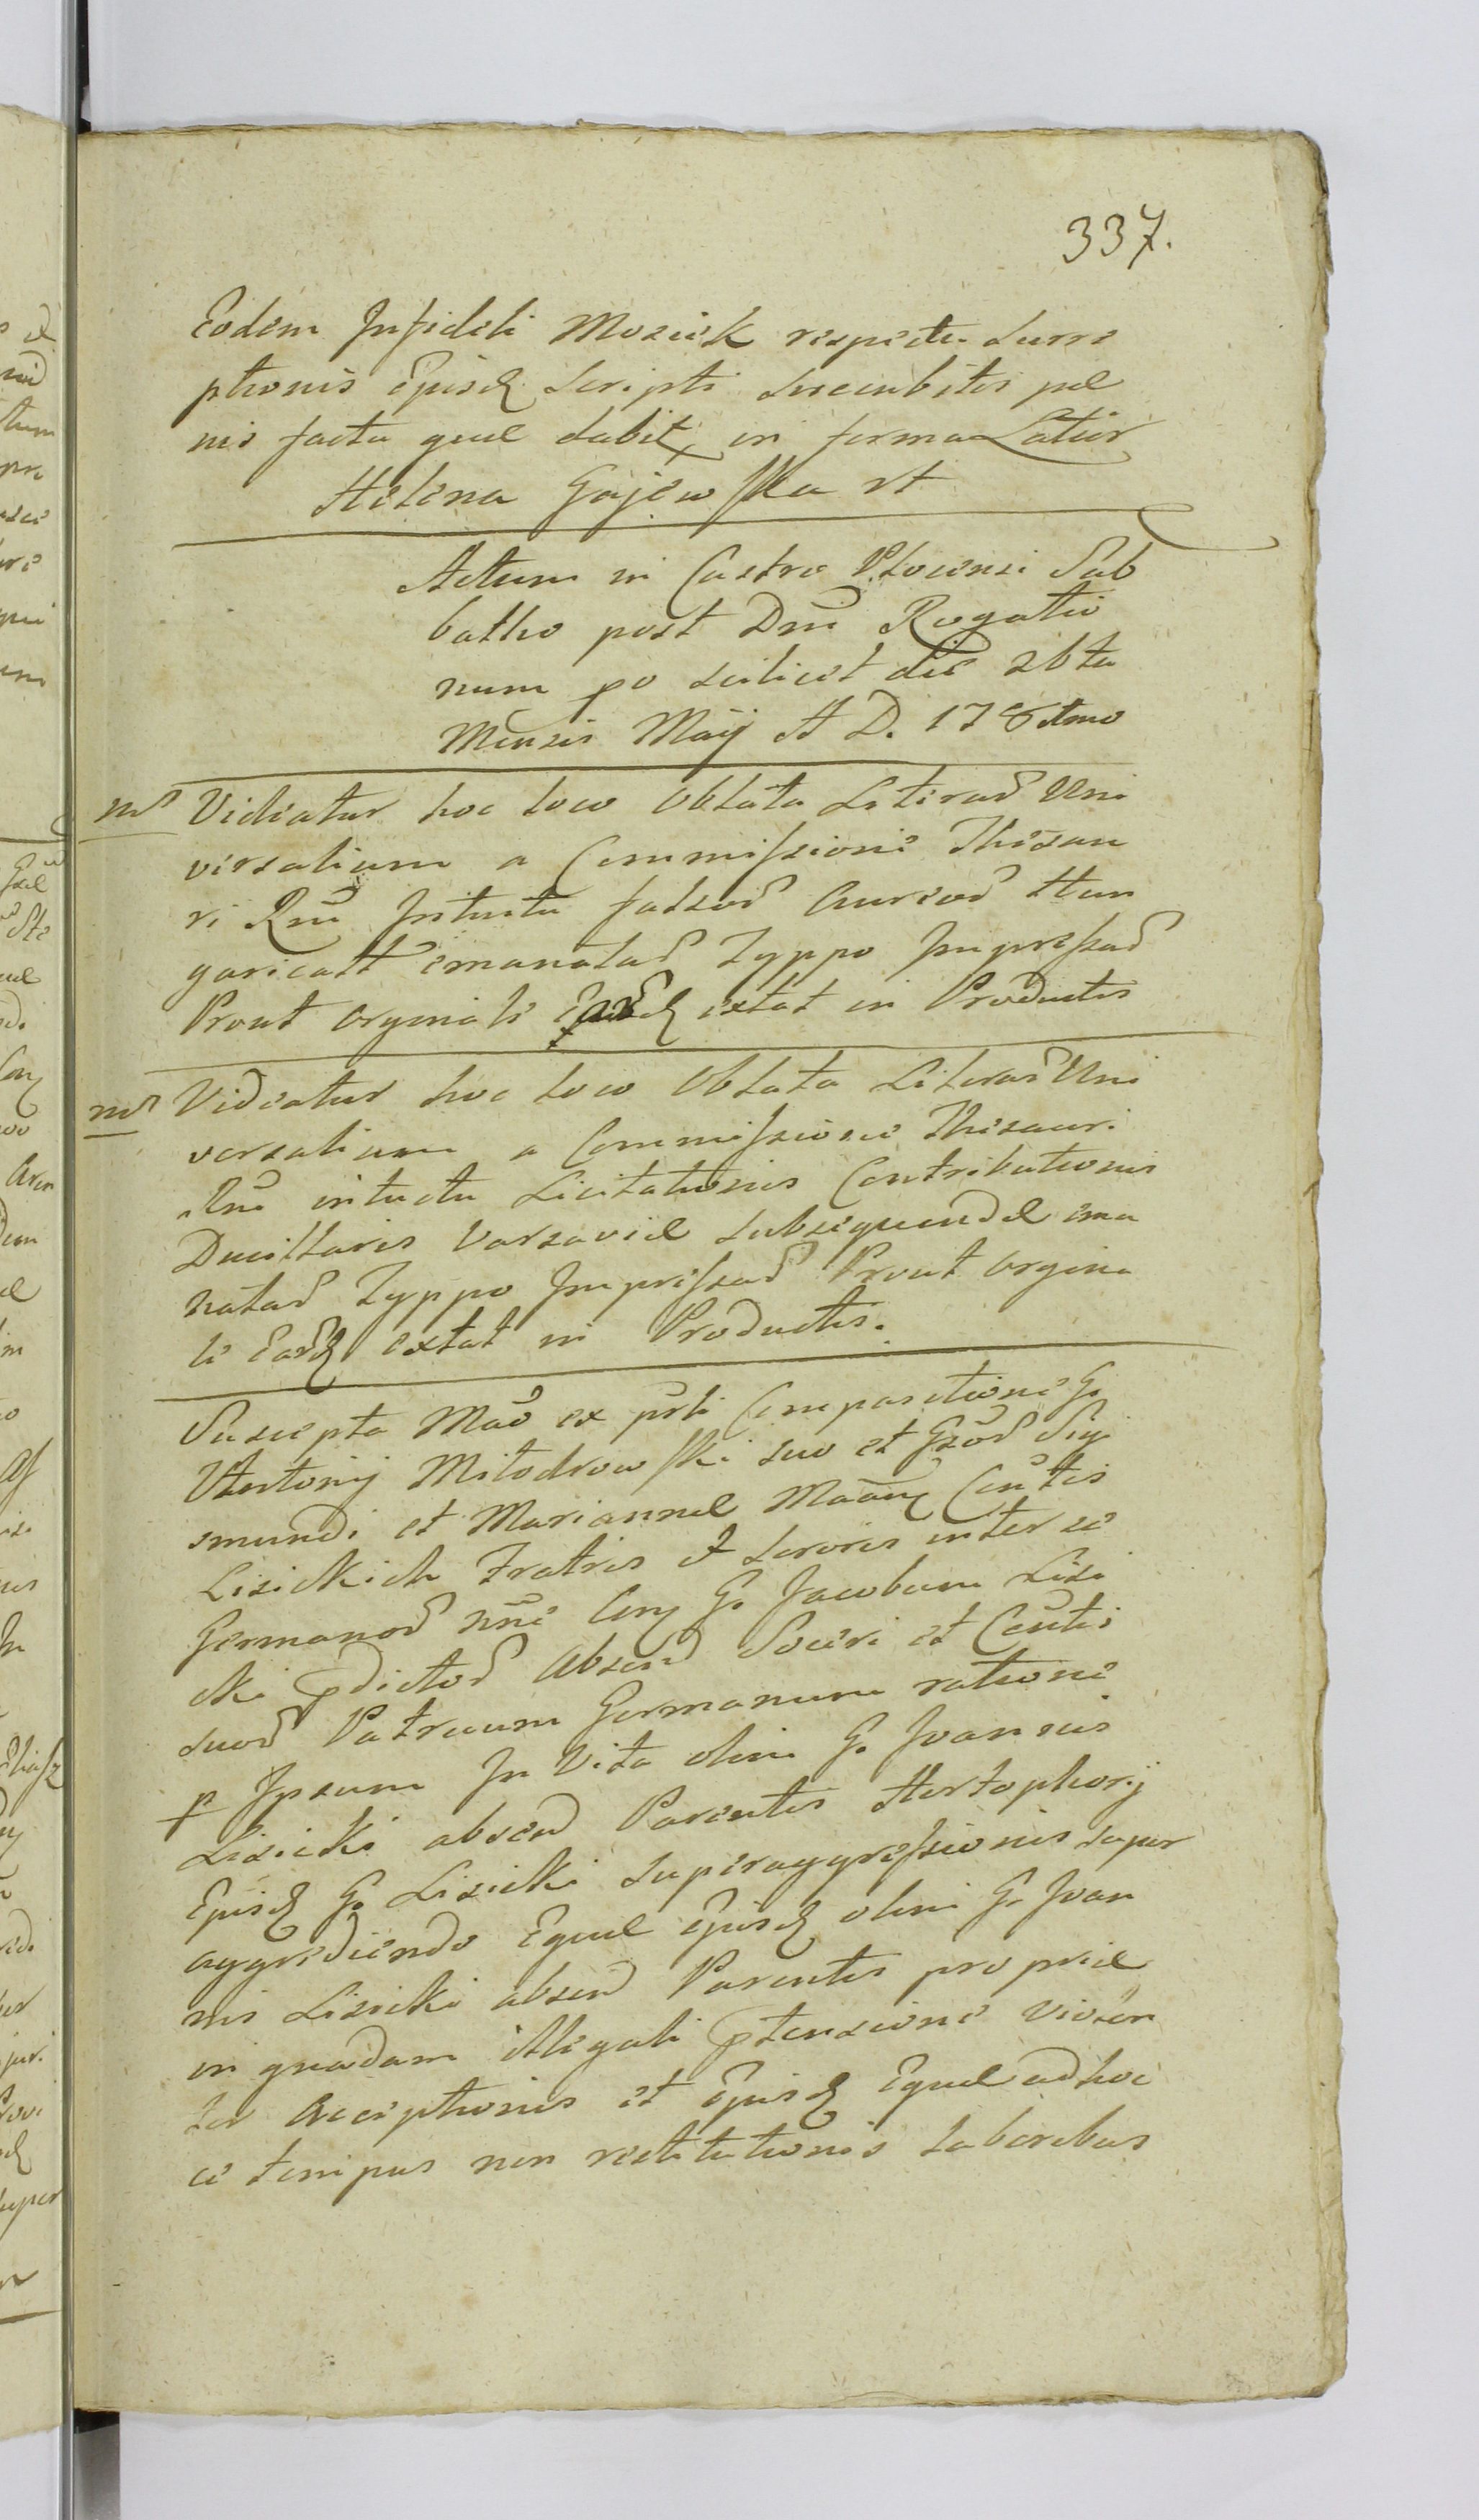 337.
Eodem Infideli Mosiek respectu surre
ptionis Ejusd scripti succubitis pœ
nis facta quæ dabit in forma Latior
Helena Gajewska rt
Actum in Castro Plocensi Sab
batho post Dni Rogatio
num po scilicet die 26ta
Mensis Maij A D. 178tmo
Videatur hoc loco Oblata Literar Uni
versalium a Commissione Thesau
ri Rni Intuitu falsor Aureor Hun
garicall emanatar Typpo Impressar
Prout orginale extat in Productis
Videatur hoc loco Oblata Literar Uni
versalium a Commissione Thesauri
Rni intuitu Licitationis Contributionis
Ducillaris Varsaviæ subsequendæ ema
natar Typpo Impressar Prout orgina
le Eard extat in Productis.
Suscepta Mao ex prli Comparitione G.
Antonij Mlodrowski suo et Gsor Sigi
smundi et Mariannæ Conlis
Lisickich Fratris et Sororis inter se
Germanor nne G. Jacobum Lisi
cki pdictor Absend Soceri et Conlis
suor Patruum Germanum ratione
p Ipsum In Vita olim G. Joannis
Lisicki absend Parentis
Ejusd G. Lisicki superaggressionis super
aggrediendo Equæ Ejusd olim G. Joan
nis Lisicki absend Parentis propriæ
in quadam illegali ptensione violen
ter Acceptionis et Ejusd Equæ ad hoc
ce tempus non restitutionis laboribus